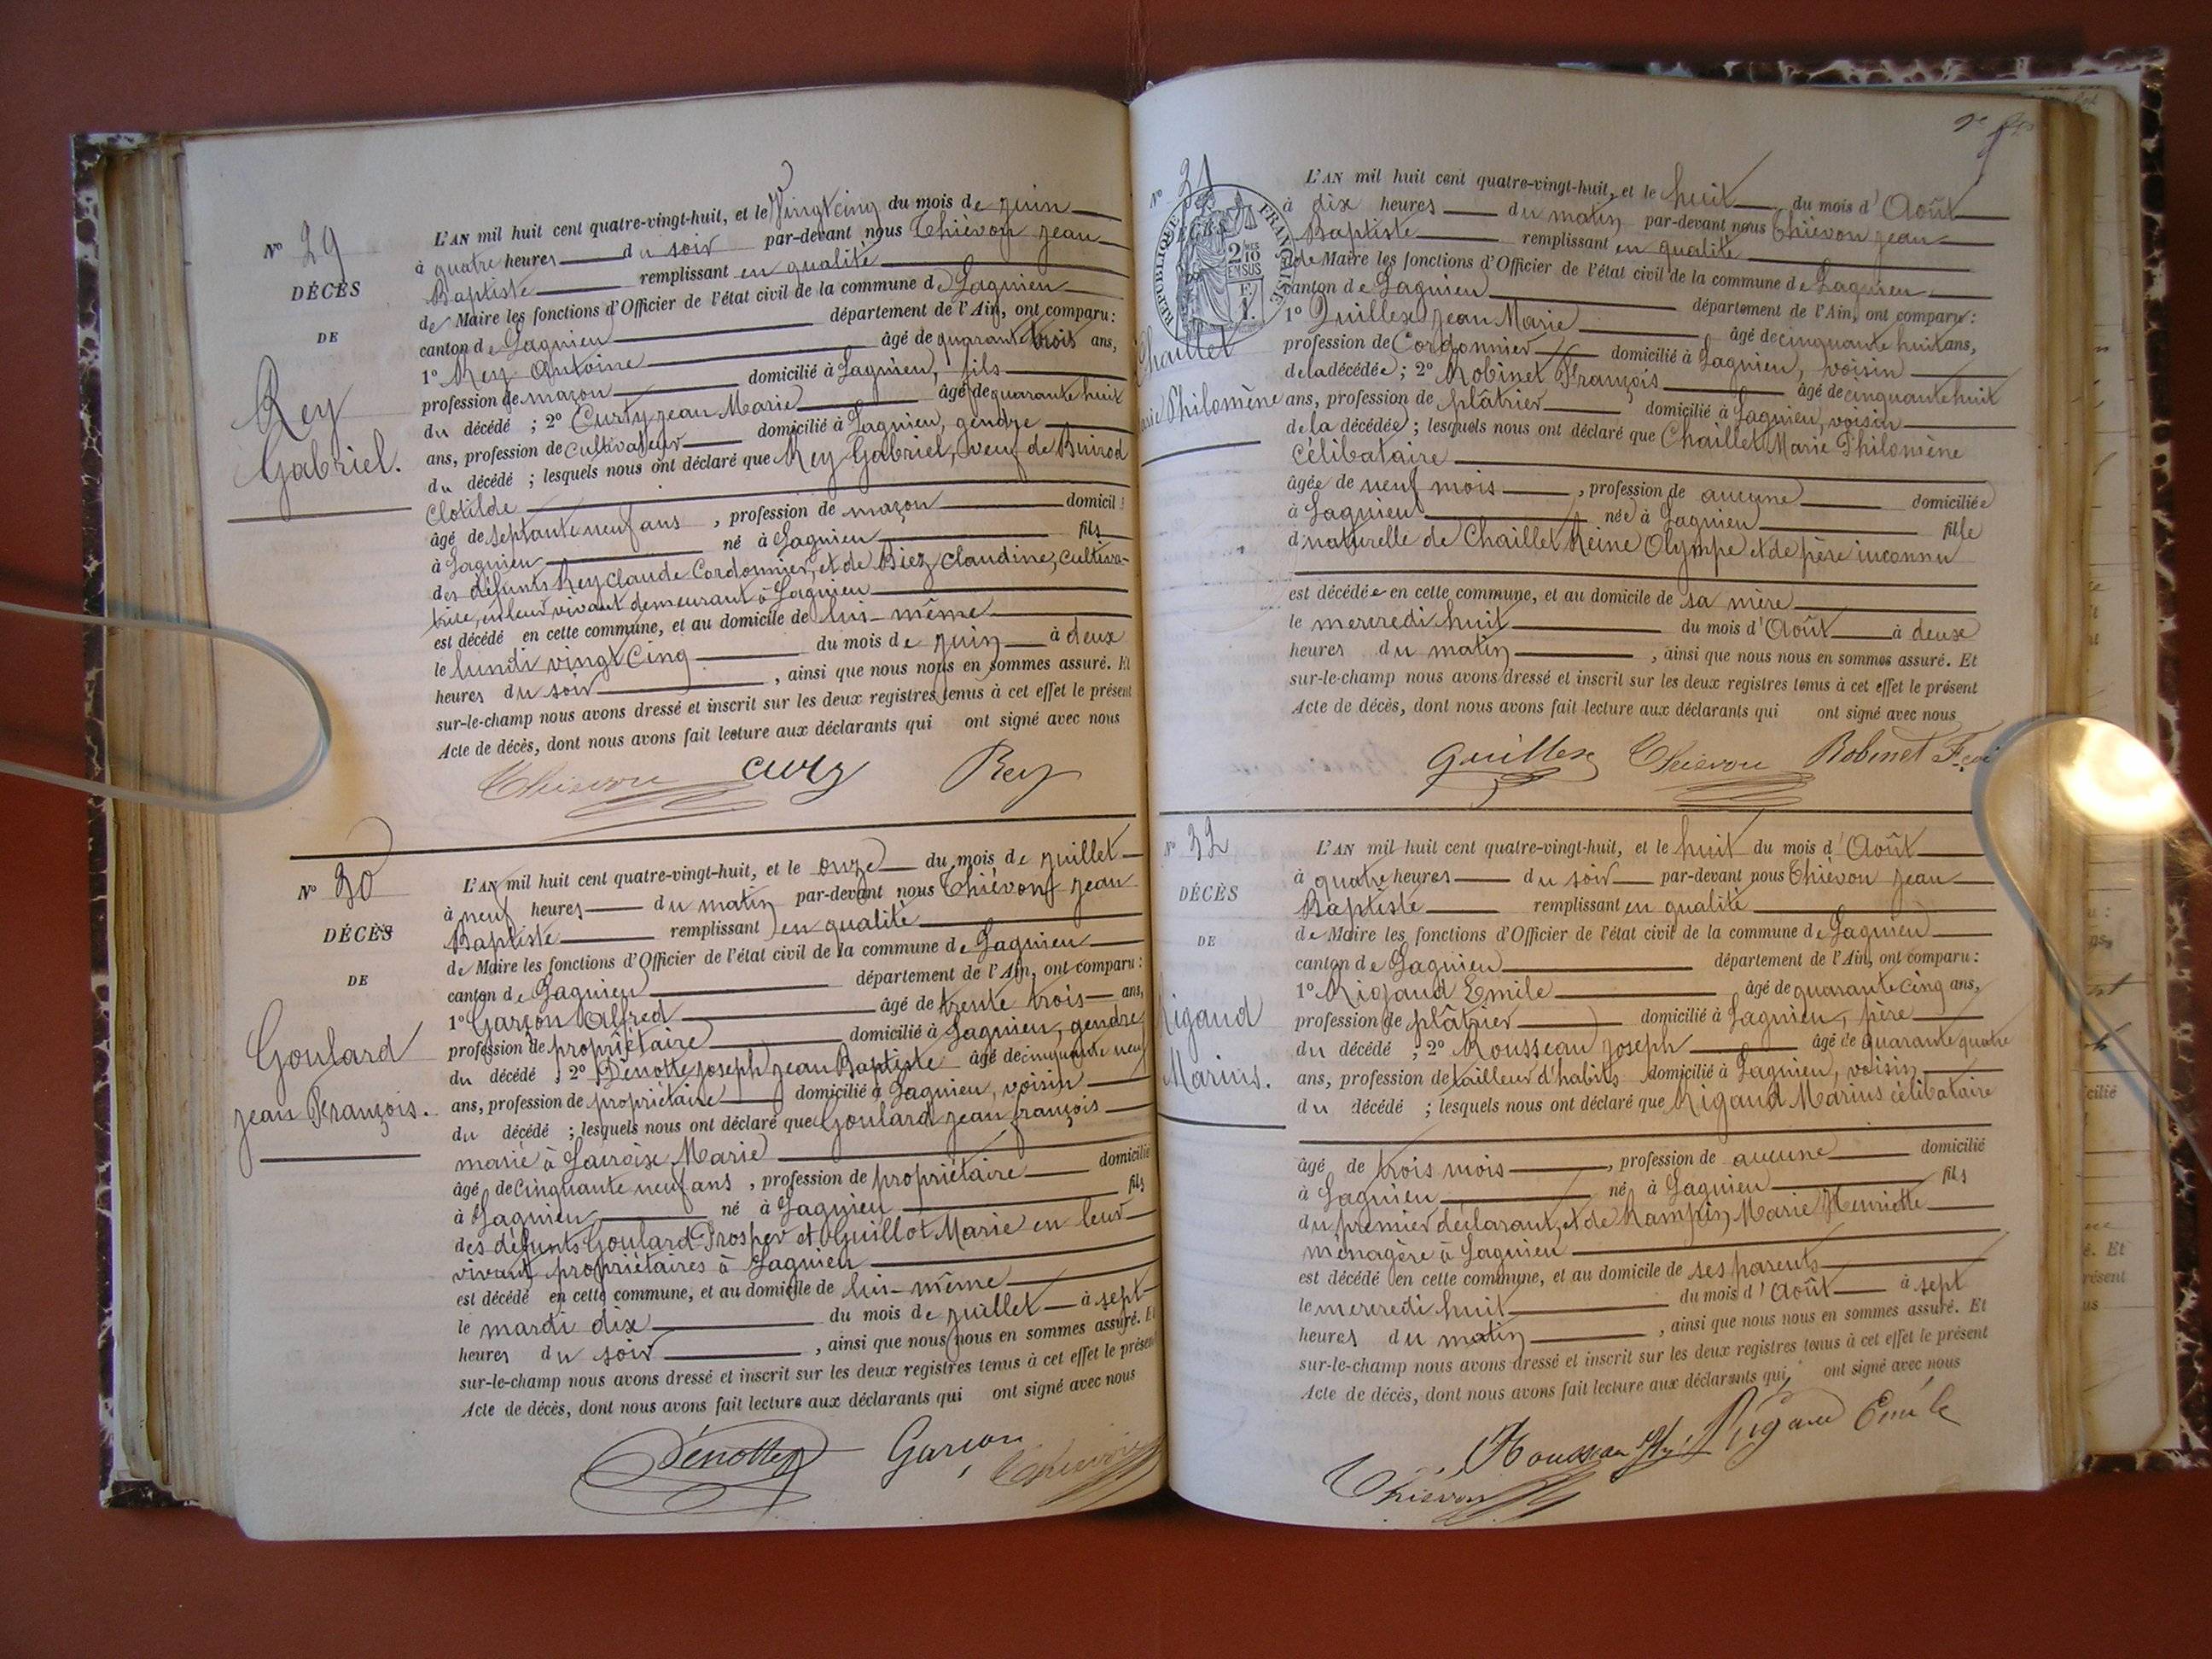 N° 29
DÉCÈS
DE
Rey
Gabriel.
L'AN mil huit cent quatre-vingt-huit, et le Vingt cinq du mois de juin
à quatre heures du soir par-devant nous Thiévon Jean
Baptiste remplissant en qualité
de Maire les fonctions d'Officier de l'état civil de la commune de Lagnieu
canton de Lagnieu département de l'Ain, ont comparu :
1° Rey Antoine âgé de quarante trois ans,
profession de maçon domicilié à Lagnieu, fils
du décédé ; 2° Curty Jean Marie âgé de quarante huit
ans, profession de Cultivateur domicilié à Lagnieu, gendre
du décédé ; lesquels nous ont déclaré que Rey Gabriel, veuf de Buirod
Clotilde
âgé de septante neuf ans , profession de maçon domicil
à Lagnieu né à Lagnieu fils
des défunts Rey Claude Cordonnier, et de Biez Claudine, cultiva-
trice, en leur vivant demeurant à Lagnieu
est décédé en cette commune, et au domicile de lui-même
le lundi vingt cinq du mois de juin à deux
heures du soir , ainsi que nous nous en sommes assuré. Et
sur-le-champ nous avons dressé et inscrit sur les deux registres tenus à cet effet le présent
Acte de décès, dont nous avons fait lecture aux déclarants qui ont signé avec nous
Thiévon Curty Rey
N° 30
DÉCÈS
DE
Goulard
Jean François.
L'AN mil huit cent quatre-vingt-huit, et le onze du mois de juillet
à neuf heures du matin par-devant nous Thiévon Jean
Baptiste remplissant en qualité
de Maire les fonctions d'Officier de l'état civil de la commune de Lagnieu
canton de Lagnieu département de l'Ain, ont comparu :
1° Garçon Alfred âgé de trente trois ans,
profession de propriétaire domicilié à Lagnieu, gendre
du décédé ; 2° Dénotte Joseph Jean Baptiste âgé de cinquante neuf
ans, profession de propriétaire domicilié à Lagnieu, voisin
du décédé ; lesquels nous ont déclaré que Goulard Jean françois
marié à Lacroix Marie
âgé de Cinquante neuf ans , profession de propriétaire domicilié
à Lagnieu né à Lagnieu fils
des défunts Goulard Prosper et Guillot Marie en leur
vivant propriétaires à Lagnieu
est décédé en cette commune, et au domicile de lui-même
le mardi dix du mois de juillet à sept
heures du soir , ainsi que nous nous en sommes assuré. Et
sur-le-champ nous avons dressé et inscrit sur les deux registres tenus à cet effet le présent
Acte de décès, dont nous avons fait lecture aux déclarants qui ont signé avec nous
Dénotte Garçon Thiévon
N° 31
RÉPUBLIQUE FRANÇAISE
2/10
EN SUS
Chaillet
Marie Philomène
L'AN mil huit cent quatre-vingt-huit, et le huit du mois d'Août
à dix heures du matin par-devant nous Thiévon Jean
Baptiste remplissant en qualité
de Maire les fonctions d'Officier de l'état civil de la commune de Lagnieu
canton de Lagnieu département de l'Ain, ont comparu :
1° Quillex Jean Marie âgé de cinquante huit ans,
profession de Cordonnier domicilié à Lagnieu, voisin
de la décédée ; 2° Robinet François âgé de cinquante huit
ans, profession de plâtrier domicilié à Lagnieu, voisin
de la décédée ; lesquels nous ont déclaré que Chaillet Marie Philomène
Célibataire
âgée de neuf mois , profession de aucune domiciliée
à Lagnieu née à Lagnieu fille
d naturelle de Chaillet Reine Olympe et de père inconnu
est décédée en cette commune, et au domicile de sa mère
le mercredi huit du mois d'Août à deux
heures du matin , ainsi que nous nous en sommes assuré. Et
sur-le-champ nous avons dressé et inscrit sur les deux registres tenus à cet effet le présent
Acte de décès, dont nous avons fait lecture aux déclarants qui ont signé avec nous
Quillex Thiévon Robinet F.çoi
N° 32
DÉCÈS
DE
Rigaud
Marius.
L'AN mil huit cent quatre-vingt-huit, et le huit du mois d'Août
à quatre heures du soir par-devant nous Thiévon Jean
Baptiste remplissant en qualité
de Maire les fonctions d'Officier de l'état civil de la commune de Lagnieu
canton de Lagnieu département de l'Ain, ont comparu :
1° Rigaud Emile âgé de quarante cinq ans,
profession de plâtrier domicilié à Lagnieu, père
du décédé ; 2° Rousseau Joseph âgé de quarante quatre
ans, profession de tailleur d'habits domicilié à Lagnieu, voisin
du décédé ; lesquels nous ont déclaré que Rigaud Marius célibataire
âgé de trois mois , profession de aucune domicilié
à Lagnieu né à Lagnieu fils
du premier déclarant, et de Rampin Marie Henriette
ménagère à Lagnieu
est décédé en cette commune, et au domicile de ses parents
le mercredi huit du mois d'Août à sept
heures du matin , ainsi que nous nous en sommes assuré. Et
sur-le-champ nous avons dressé et inscrit sur les deux registres tenus à cet effet le présent
Acte de décès, dont nous avons fait lecture aux déclarants qui ont signé avec nous
Thiévon Rousseau Rigaud Emile